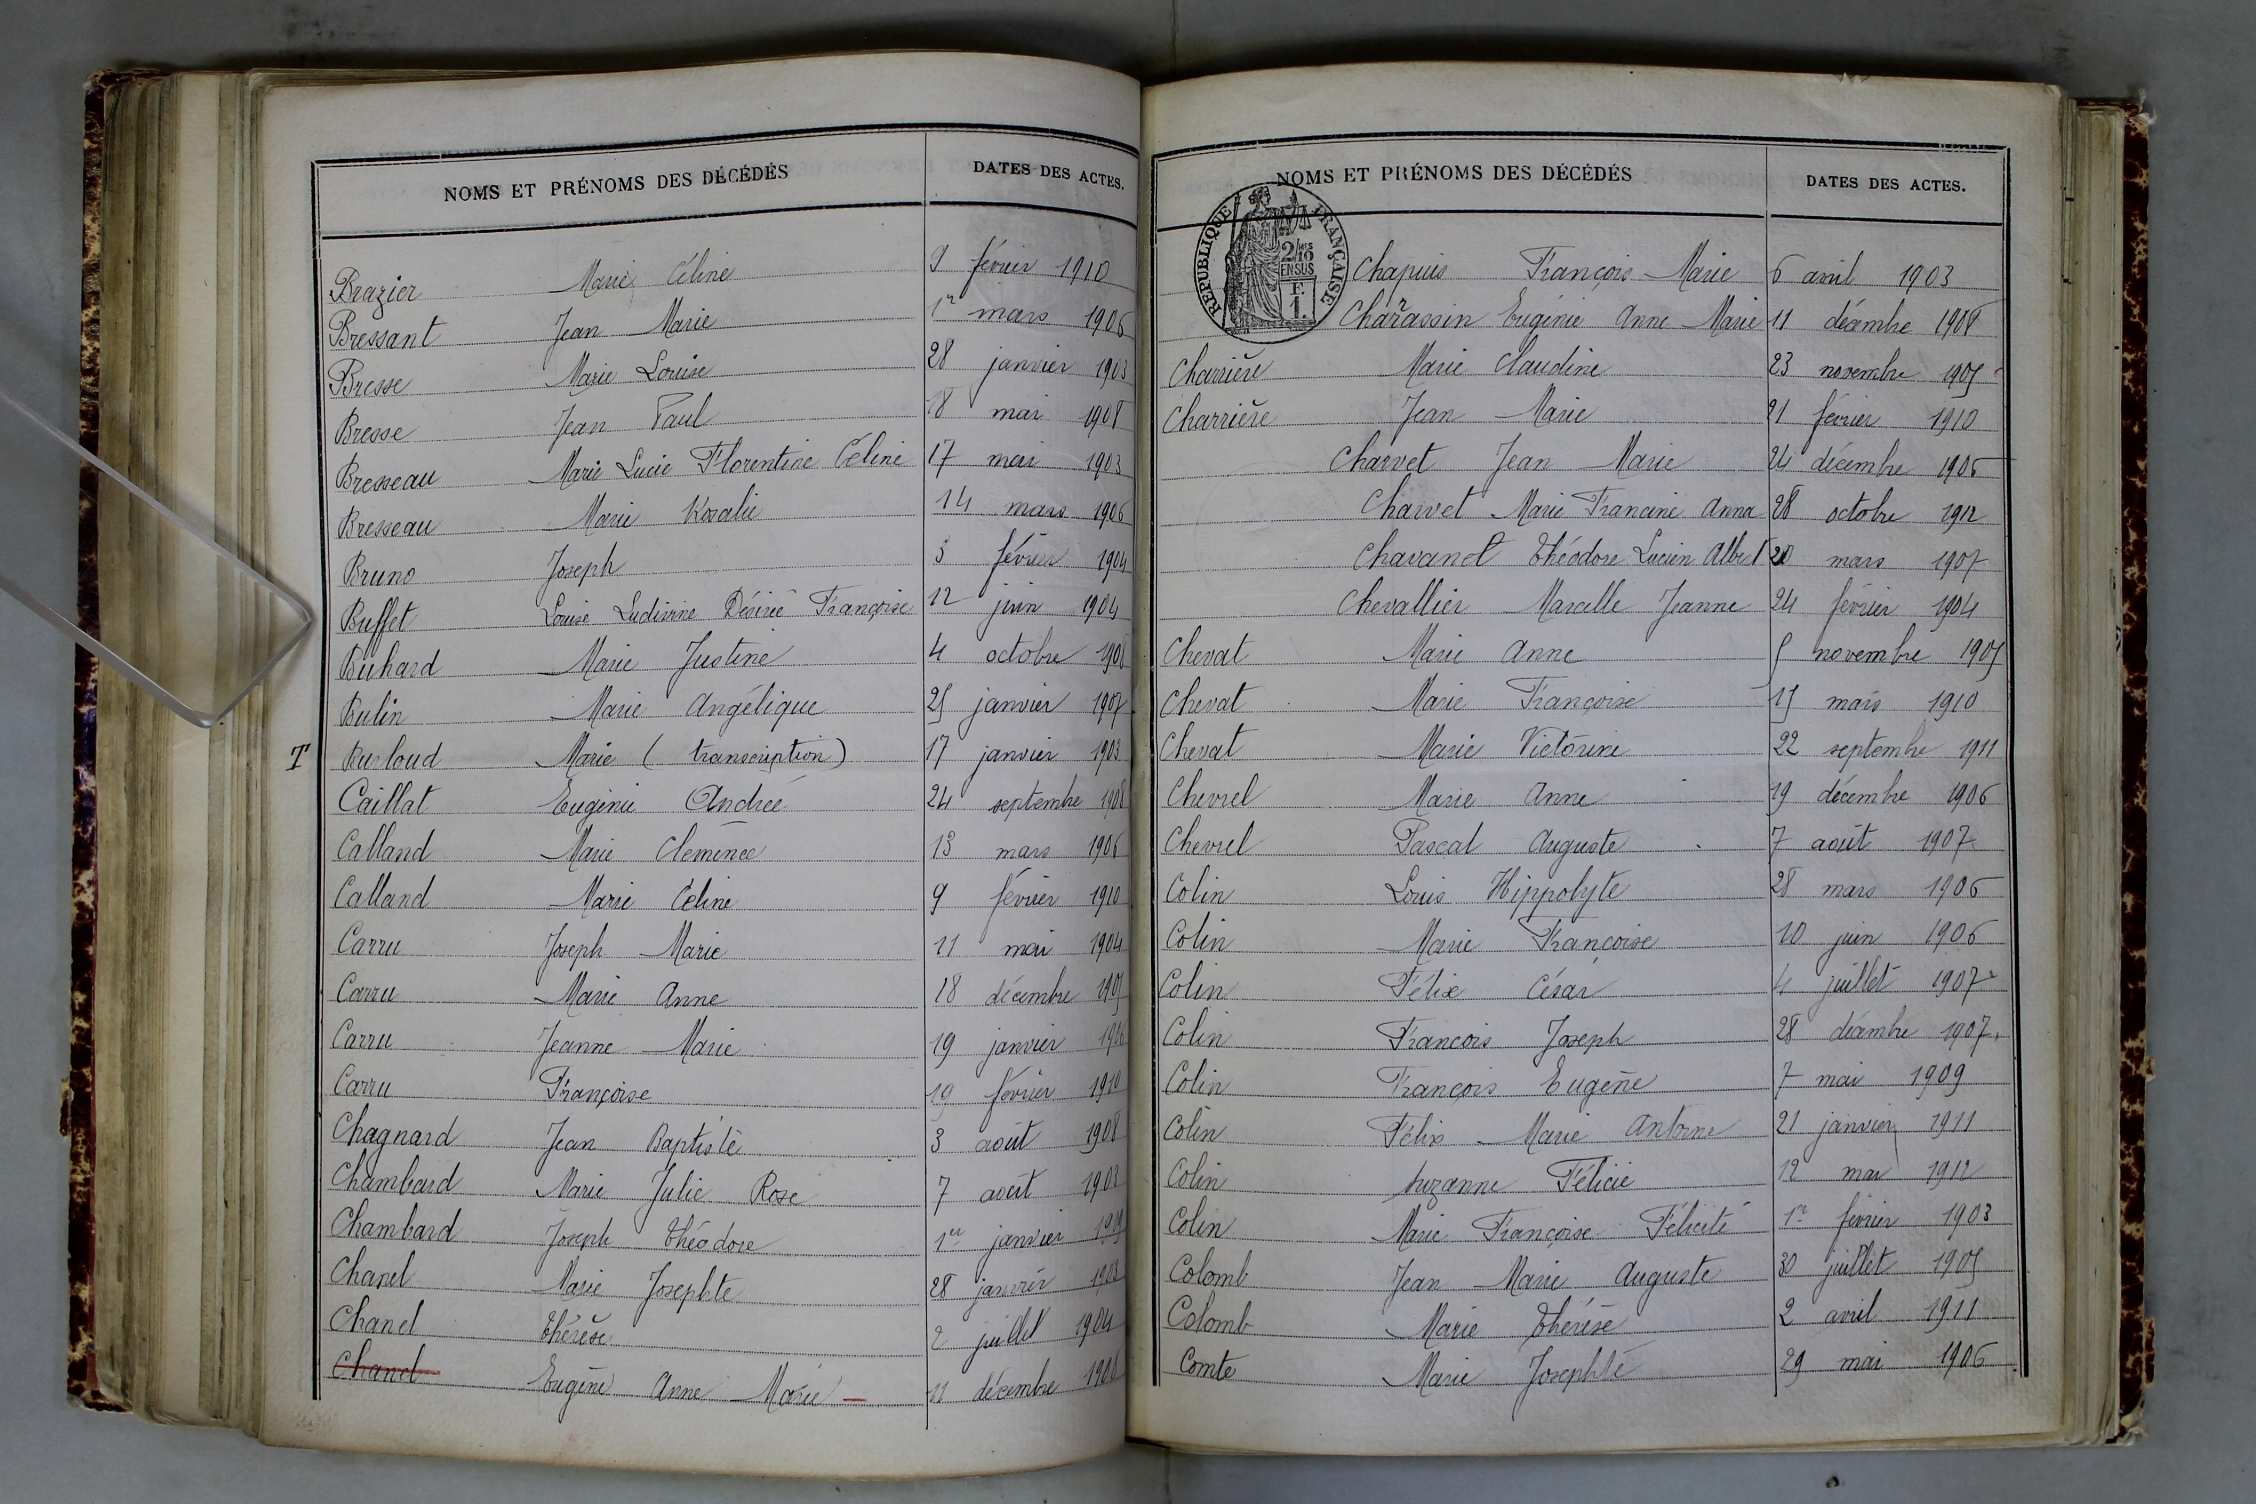 NOMS ET PRÉNOMS DES DÉCÉDÉS DATES DES ACTES.
Brazier Marie Céline 9 février 1910
Bressant Jean Marie 1er mars 1906
Bresse Marie Louise 28 janvier 1903
Bresse Jean Paul 18 mai 1908
Bresseau Marie Lucie Florentine Céline 17 mai 1903
Bresseau Marie Rosalie 14 mars 1906
Bruno Joseph 3 février 1904
Buffet Louise Ludivine Désirée Françoise 12 juin 1904
Buhard Marie Justine 4 octobre 1908
Bulin Marie Angélique 25 janvier 1907
T Burloud Marie (transcription) 17 janvier 1903
Caillat Eugénie Andrée 24 septembre 1908
Calland Marie Clémence 13 mars 1906
Calland Marie Céline 9 février 1910
Carru Joseph Marie 11 mai 1904
Carru Marie Anne 18 décembre 1905
Carru Jeanne Marie 19 janvier 1906
Carru Françoise 19 février 1910
Chagnard Jean Baptiste 3 août 1908
Chambard Marie Julie Rose 7 août 1903
Chambard Joseph Théodore 1er janvier
Chanel Marie Josephte 28 janvier 1903
Chanel Thérèse 2 juillet 1904
Chanel Eugénie Anne Marie 11 décembre 1908
NOMS ET PRÉNOMS DES DÉCÉDÉS DATES DES ACTES.
RÉPUBLIQUE FRANÇAISE
2/10 EN SUS
F.
1.
Chapuis François Marie 6 avril 1903
Charassin Eugénie Anne Marie 11 décembre 1908
Charrière Marie Claudine 23 novembre 1905
Charrière Jean Marie 21 février 1910
Charvet Jean Marie 24 décembre 1906
Charvet Marie Francine Anna 28 octobre 1912
Chavanet Théodore Lucien Albert 20 mars 1907
Chevallier Marcelle Jeanne 24 février 1904
Chevat Marie Anne 5 novembre 1905
Chevat Marie Françoise 15 mars 1910
Chevat Marie Victorine 22 septembre 1911
Chevrel Marie Anne 19 décembre 1906
Chevrel Pascal Auguste 7 août 1907
Colin Louis Hippolyte 28 mars 1906
Colin Marie Françoise 10 juin 1906
Colin Félix César 4 juillet 1907
Colin François Joseph 28 décembre 1907
Colin François Eugène 7 mai 1909
Colin Félix Marie Antoine 21 janvier 1911
Colin Suzanne Félicie 12 mai 1912
Colin Marie Françoise Félicité 1er février 1903
Colomb Jean Marie Auguste 30 juillet 1905
Colomb Marie Thérèse 2 avril 1911
Comte Marie Josephte 29 mai 1906